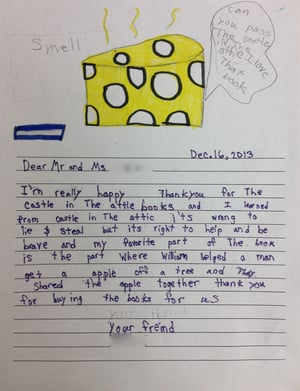 Smell
can
you pass
The castle
in The
attic I love
That
book
Dec. 16, 2013
Dear Mr and Ms
I'm really happy Thankyou for The
castle in The attic books and I learned
from castle in The attic it's wrong to
lie & steal but its right to help and be
brave and my favorite part of The book
is the part where William helped a man
get a apple off a tree and They
Shared the apple together thank you
for buying the books for us
your freind
your freind